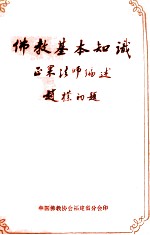 佛教基本知識
正果法师编述
趙樸初題
中国佛教协会福建省分会印